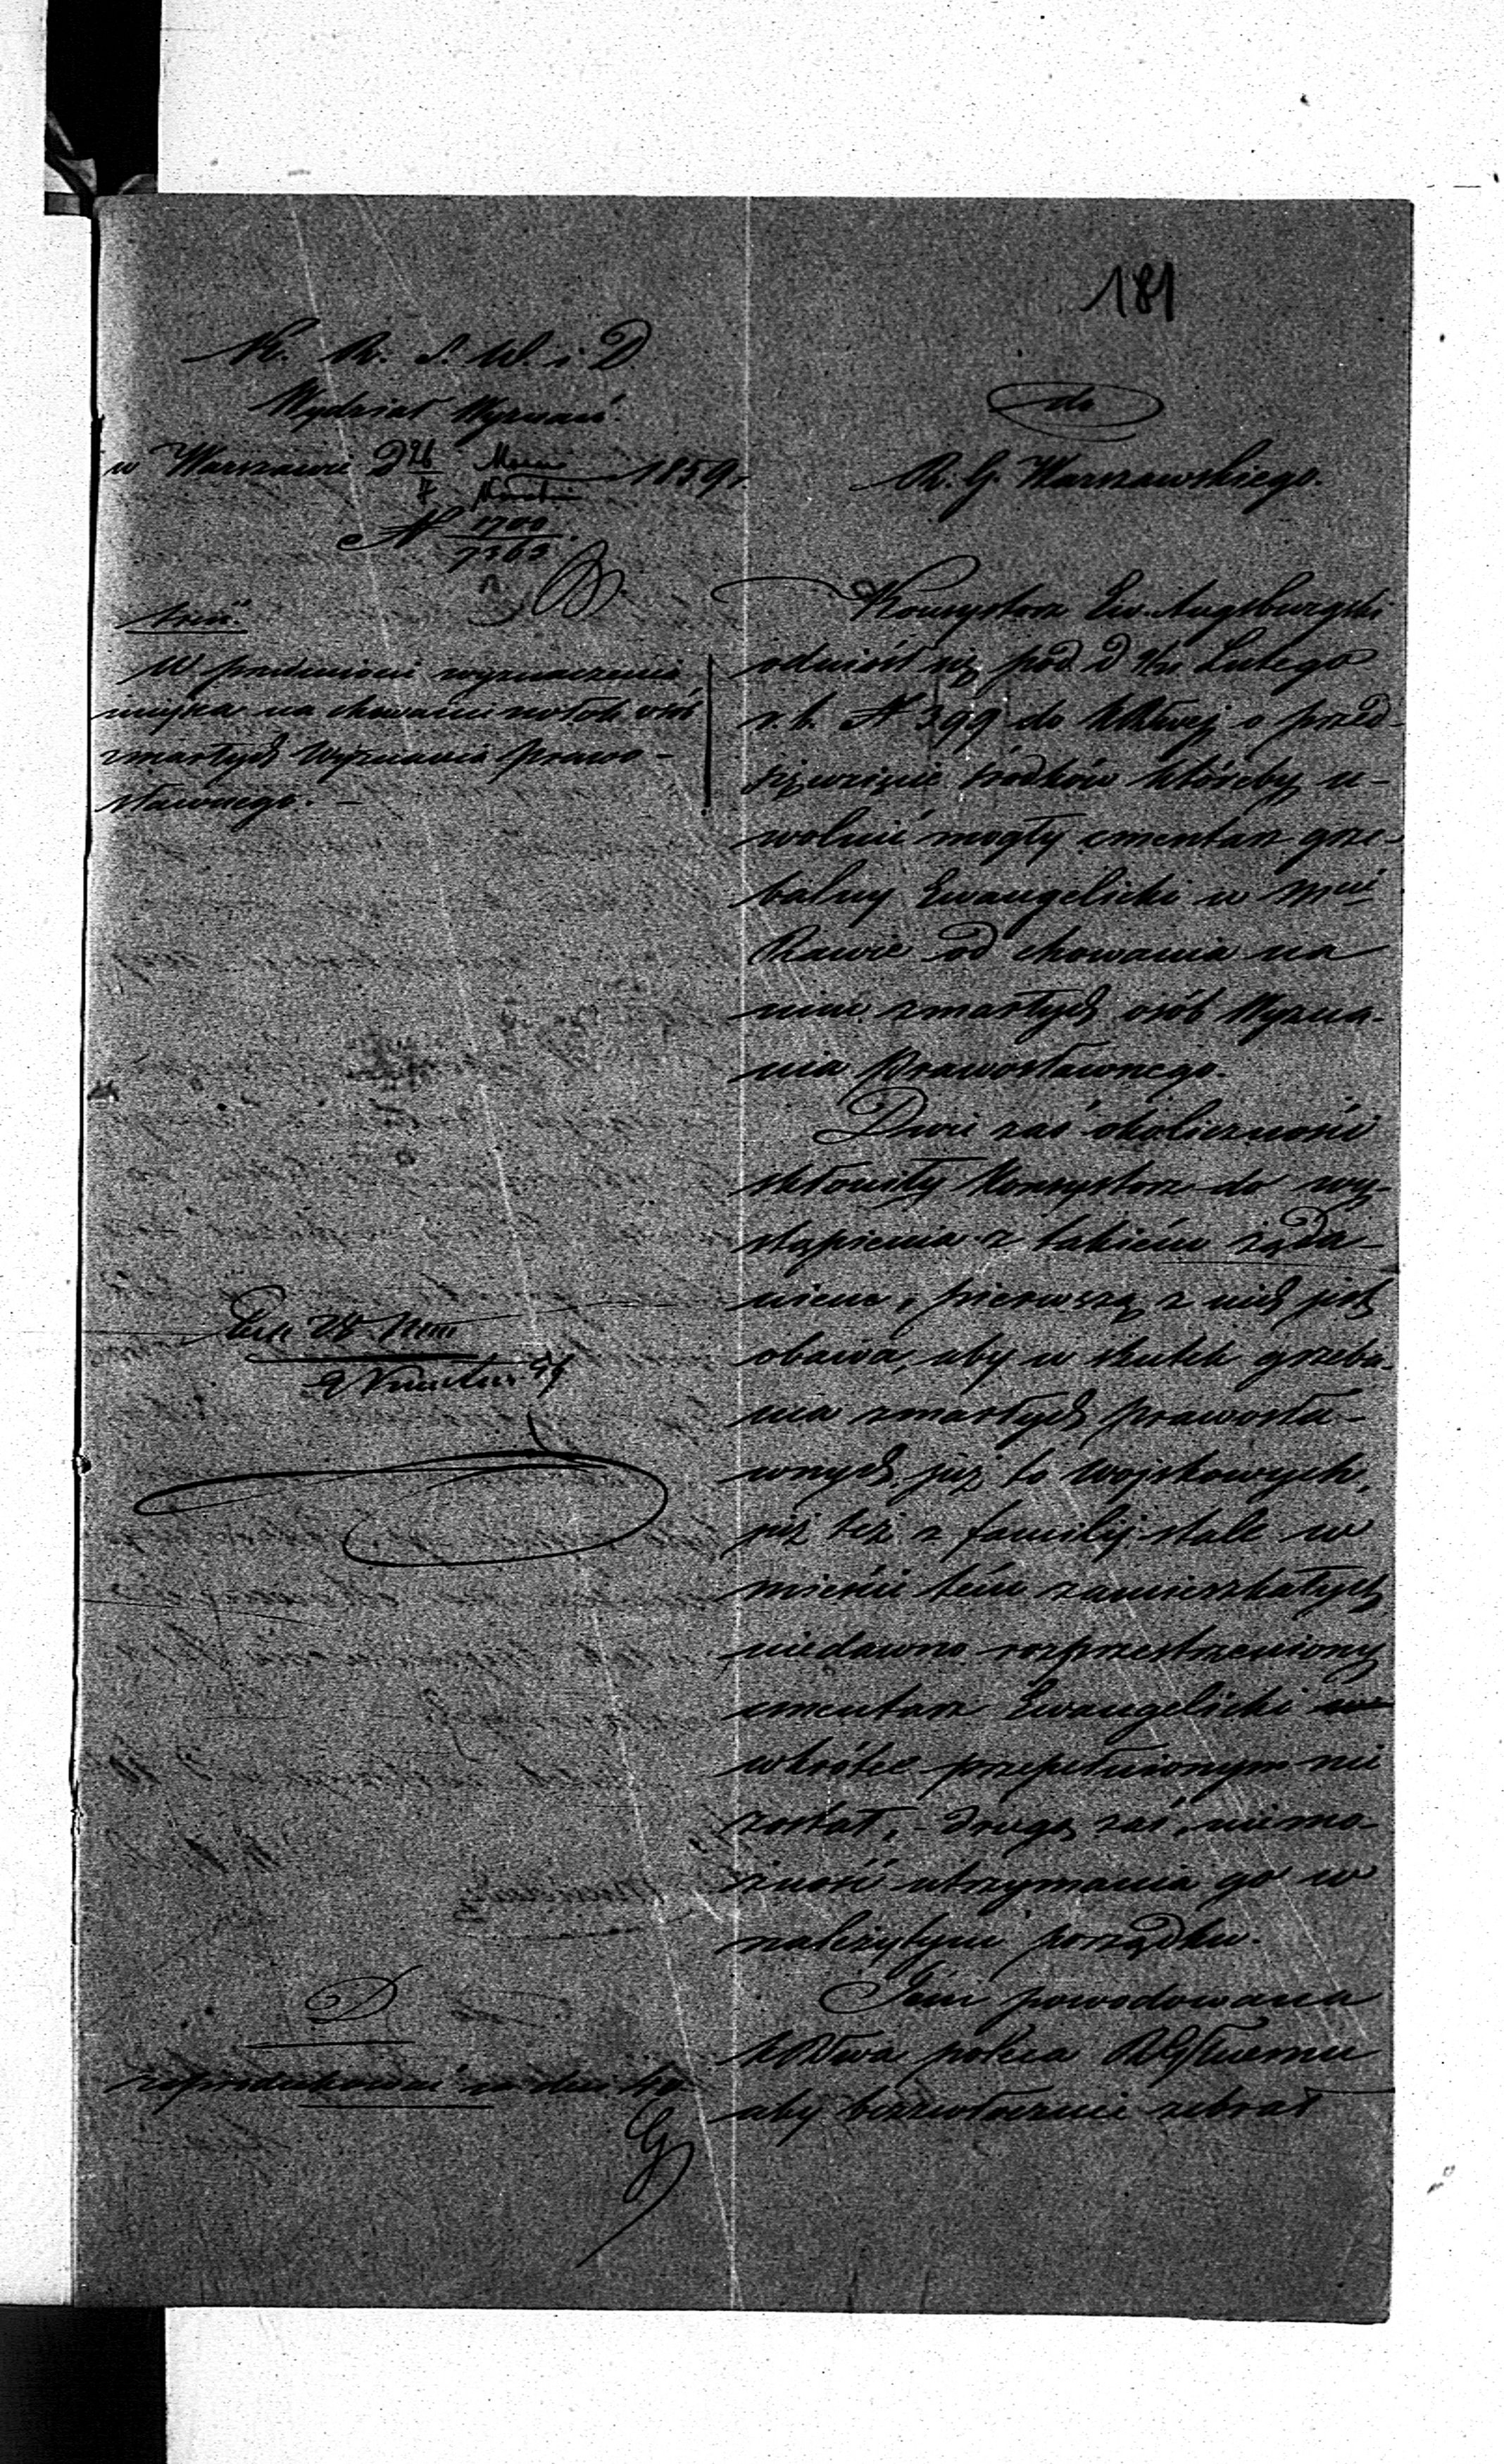 181
K. R. S. W. i D.
Wydział Wyznań.
w Warszawie D 26 Marca 1859 r.
7
N 1700
7363
treść.
W przedmiocie wyznaczenia
miejsca na chowanie zwłok osób
zmarłych Wyznania Prawo-
sławnego. -
28
D
do
R. G. Warszawskiego.
Konsystorz Ew. Augsburgski
odniósł się pod d Lutego
r. b. N 399 do KRwej o przed-
sięwzięcie środków któreby u-
wolnić mogły cmentarz grze-
balny Ewangelicki w mie
Rawie od chowania na
nim zmarłych osób Wyzna-
nia Prawosławnego.
Dwie zaś okoliczności
skłoniły Konsystorz do wy-
stąpienia z takiém żąda-
niem, pierwszą z nich jest
obawa, aby w skutek grzeba-
nia zmarłych prawosła-
wnych już to wojskowych,
już też z familij stale w
mieście tém zamieszkałych
niedawno rozprzestrzeniony
cmentarz Ewangelicki
wkrótce przepełnionym nie
został, - drugą zaś, niemo-
żność utrzymania go w
należytym porządku.
Tém powodowana
KRwa poleca RGlnemu
aby bezzwłocznie zebrał